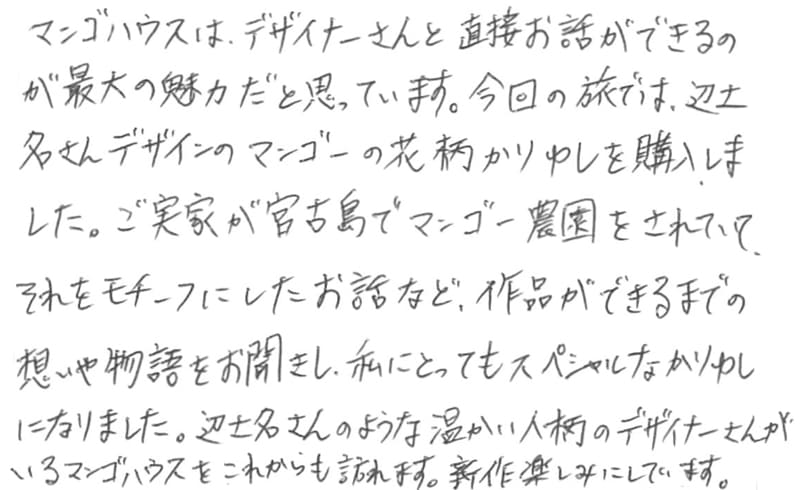 マンゴハウスは、デザイナーさんと直接お話ができるの
が最大の魅力だと思っています。今回の旅では、辺土
名さんデザインのマンゴーの花柄かりゆしを購入しま
した。ご実家が宮古島でマンゴー農園をされていて、
それをモチーフにしたお話など、作品ができるまでの
想いや物語をお聞きし、私にとってもスペシャルなかりゆし
になりました。辺土名さんのような温かい人柄のデザイナーさんが
いるマンゴハウスをこれからも訪れます。新作楽しみにしています。